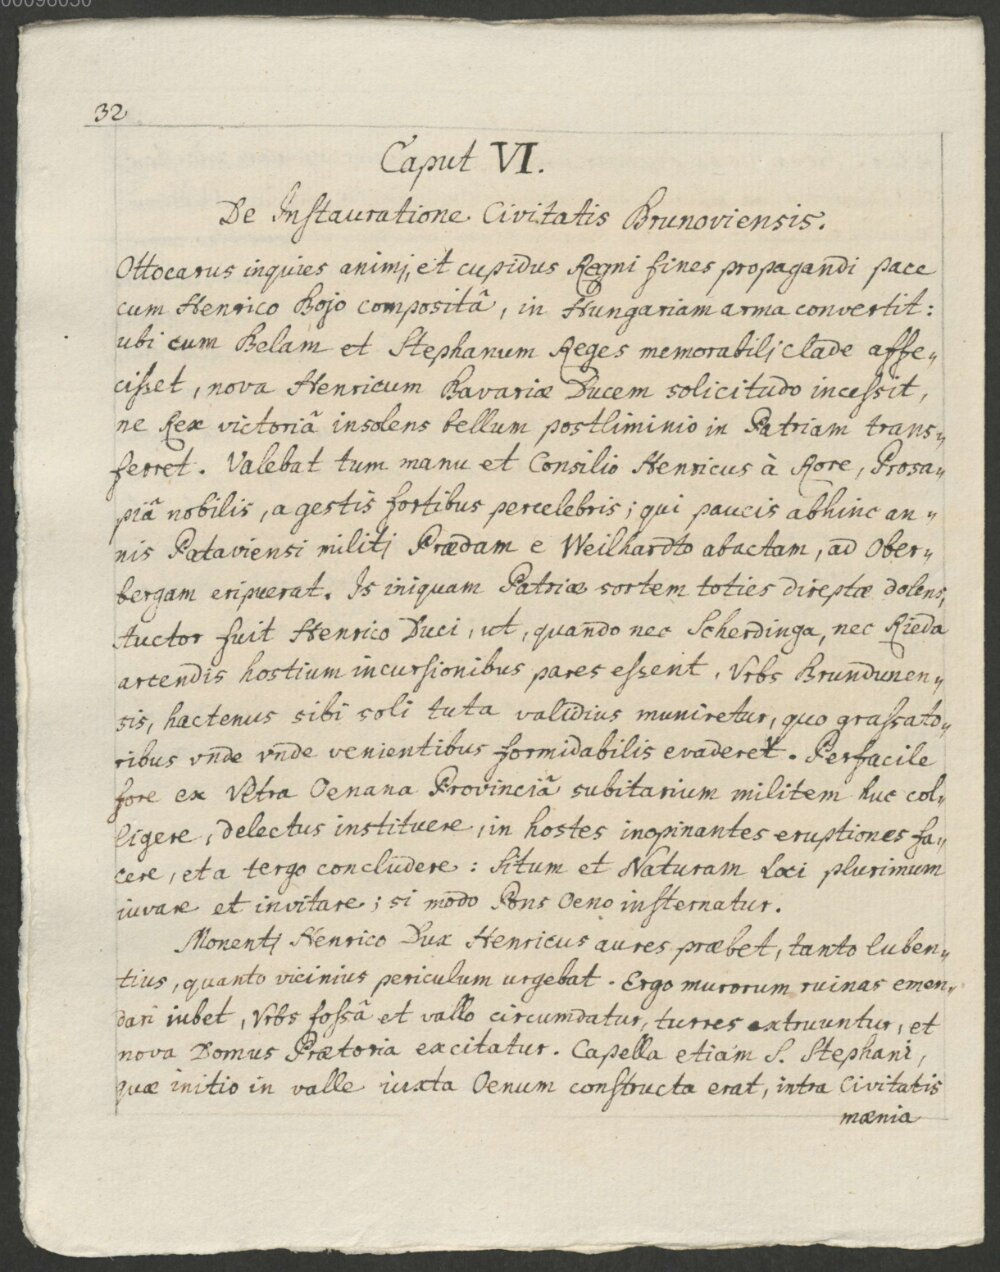 32
Caput VI.
De Instauratione Civitatis Brunoviensis.
Ottocarus inquies animi, et cupidus Regni fines propagandi pace
cum Henrico Bojo compositâ, in Hungariam arma convertit:
ubi cum Belam et Stephanum Reges memorabili clade affe„
cisset, nova Henricum Bavariæ Ducem solicitudo incessit,
ne Rex victoriâ insolens bellum postliminio in Patriam trans„
ferret. Valebat tum manu et Consilio Henricus à Rore, Prosa„
piâ nobilis, a gestis fortibus percelebris; qui paucis abhinc an„
nis Pataviensi militi Prædam e Weilhardto abactam, ad Ober„
bergam eripuerat. Is iniquam Patriæ sortem toties direptæ dolens,
Auctor fuit Henrico Duci, ut, quando nec Scherdinga, nec Rieda
arcendis hostium incursionibus pares essent, Vrbs Brundunen„
sis, hactenus sibi soli tuta validius muniretur, quo grassato„
ribus vnde vnde venientibus formidabilis evaderet. Perfacile
fore ex Vtra Oenana Provinciâ subitarium militem huc col„
ligere, delectus instituere, in hostes inopinantes eruptiones fa„
cere, et a tergo concludere: Situm et Naturam Loci plurimum
iuvare et invitare; si modo Pons Oeno insternatur.
Monenti Henrico Dux Henricus aures præbet, tanto luben„
tius, quanto vicinius periculum urgebat. Ergo murorum ruinas emen„
dari iubet, Vrbs fossâ et vallo circumdatur, turres extruuntur, et
nova Domus Prætoria excitatur. Capella etiam S. Stephani,
quæ initio in valle iuxta Oenum constructa erat, intra Civitatis
mænia